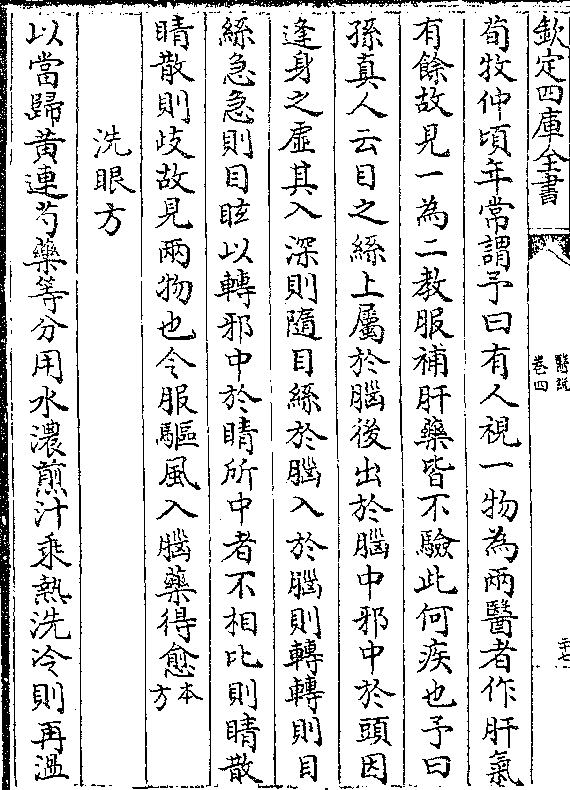 欽定四庫全書
醫說
卷四
二十七
荀牧仲頃年常謂予曰有人視一物為兩醫者作肝氣
有餘故見一為二教服補肝藥皆不驗此何疾也予曰
孫真人云目之絲上屬於腦後出於腦中邪中於頭因
逢身之虛其入深則隨目絲於腦入於腦則轉轉則目
絲急急則目眩以轉邪中於睛所中者不相比則睛散
睛散則歧故見兩物也令服驅風入腦藥得愈本方
洗眼方
以當歸黃連芍藥等分用水濃煎汁乘熱洗冷則再溫